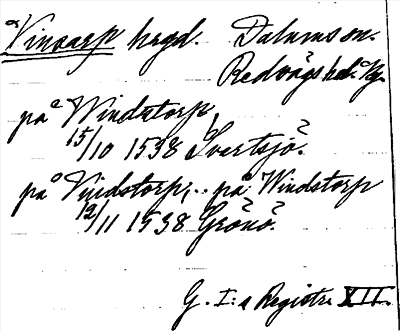 Vinsarp hrgd. Dalums sn.
Redvägs hd. Vg.
på Windstorp,
15/10 1538 Svartsjö.
på Vindstorp, .. på Windstorp
12/11 1538 Gränö.
G. I:s Registr. XII.